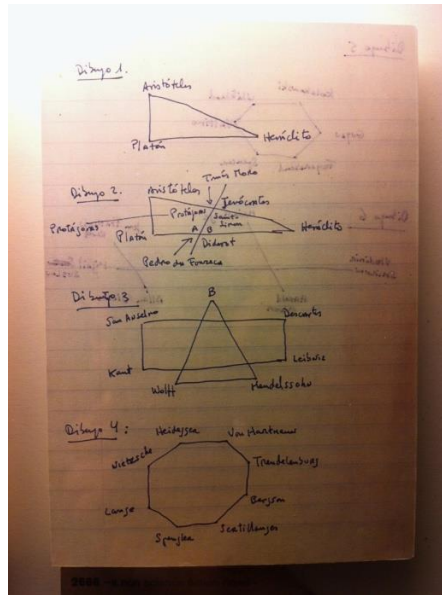 Dibujo 1.
Aristóteles
Platón
Heráclito
Dibujo 2.
Tomás Moro
Aristóteles
Jenócrates
Protágoras
Saint-
Simon
Protágoras
Platón
A
B
Heráclito
Diderot
Pedro da Fonseca
Dibujo 3
B
San Anselmo
Descartes
Kant
Leibniz
Wolff
Mendelssohn
Dibujo 4:
Heidegger
Von Hartmann
Nietzsche
Trendelenburg
Lange
Bergson
Spengler